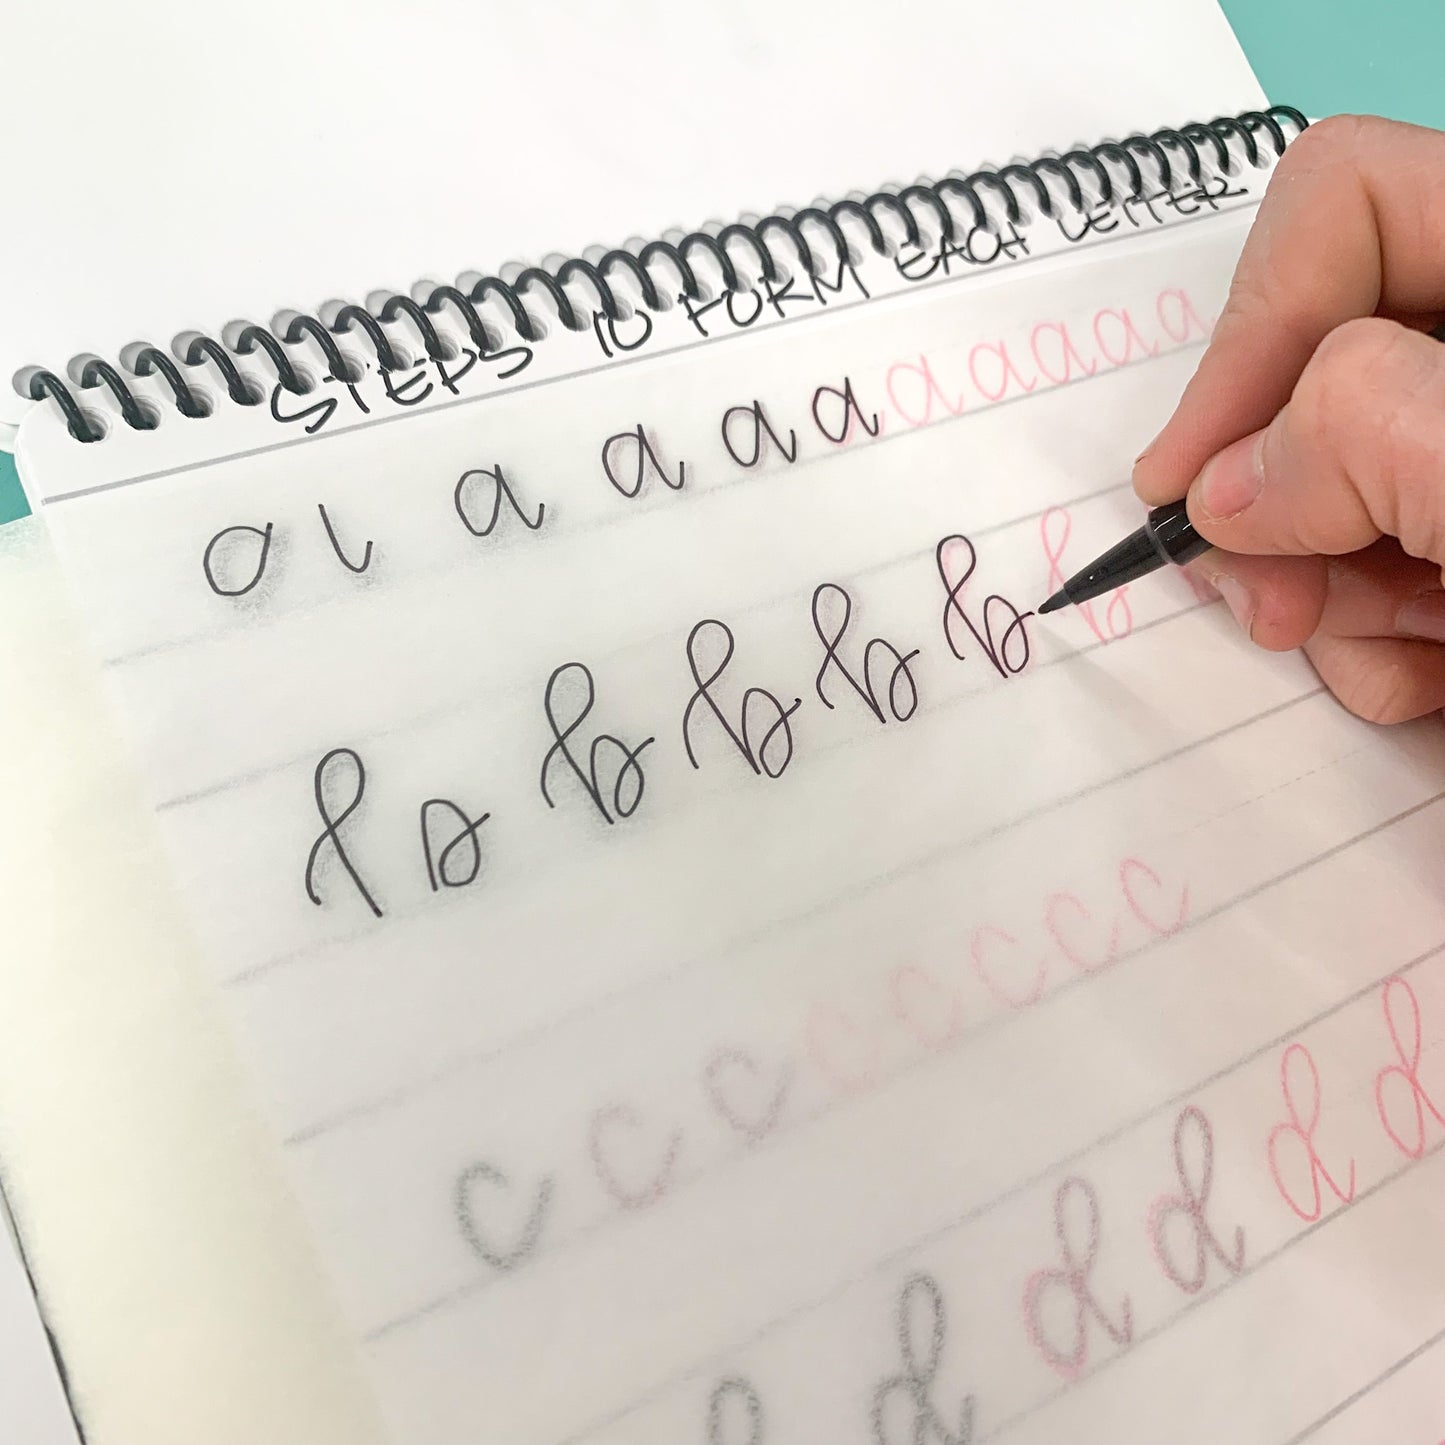 STEPS TO FORM EACH LETTER
a a a a a a a a a
b b b b b
c c c c c c c c
d d d d d d